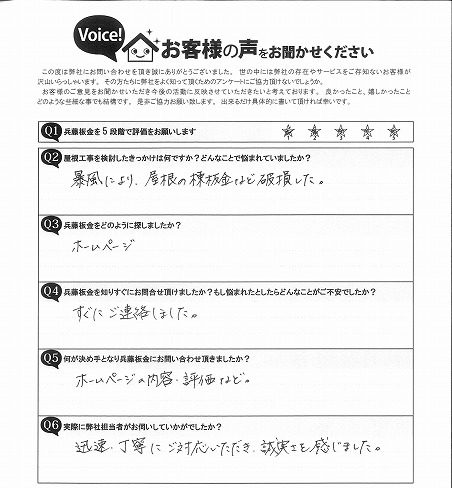 Voice!
お客様の声をお聞かせください
この度は弊社にお問い合わせを頂き誠にありがとうございました。世の中には弊社の存在やサービスをご存知ないお客様が
沢山いらっしゃいます。その方たちに弊社をよく知って頂くためのアンケートにご協力頂けないでしょうか。
お客様のご意見をお聞かせいただき今後の活動に反映させていただきたいと考えております。良かったこと、嬉しかったこと
どのような些細な事でも結構です。是非ご協力お願い致します。出来るだけ具体的に書いて頂ければ幸いです。
Q1 兵藤板金を5段階で評価をお願いします ★ ★ ★ ★ ★
Q2 屋根工事を検討したきっかけは何ですか?どんなことで悩まれていましたか?
暴風により、屋根の棟板金など破損した。
Q3 兵藤板金をどのように探しましたか?
ホームページ
Q4 兵藤板金を知りすぐにお問合せ頂けましたか?もし悩まれたとしたらどんなことがご不安でしたか?
すぐにご連絡しました。
Q5 何が決め手となり兵藤板金にお問い合わせ頂きましたか?
ホームページの内容・評価など。
Q6 実際に弊社担当者がお伺いしていかがでしたか?
迅速、丁寧にご対応いただき、誠実さを感じました。